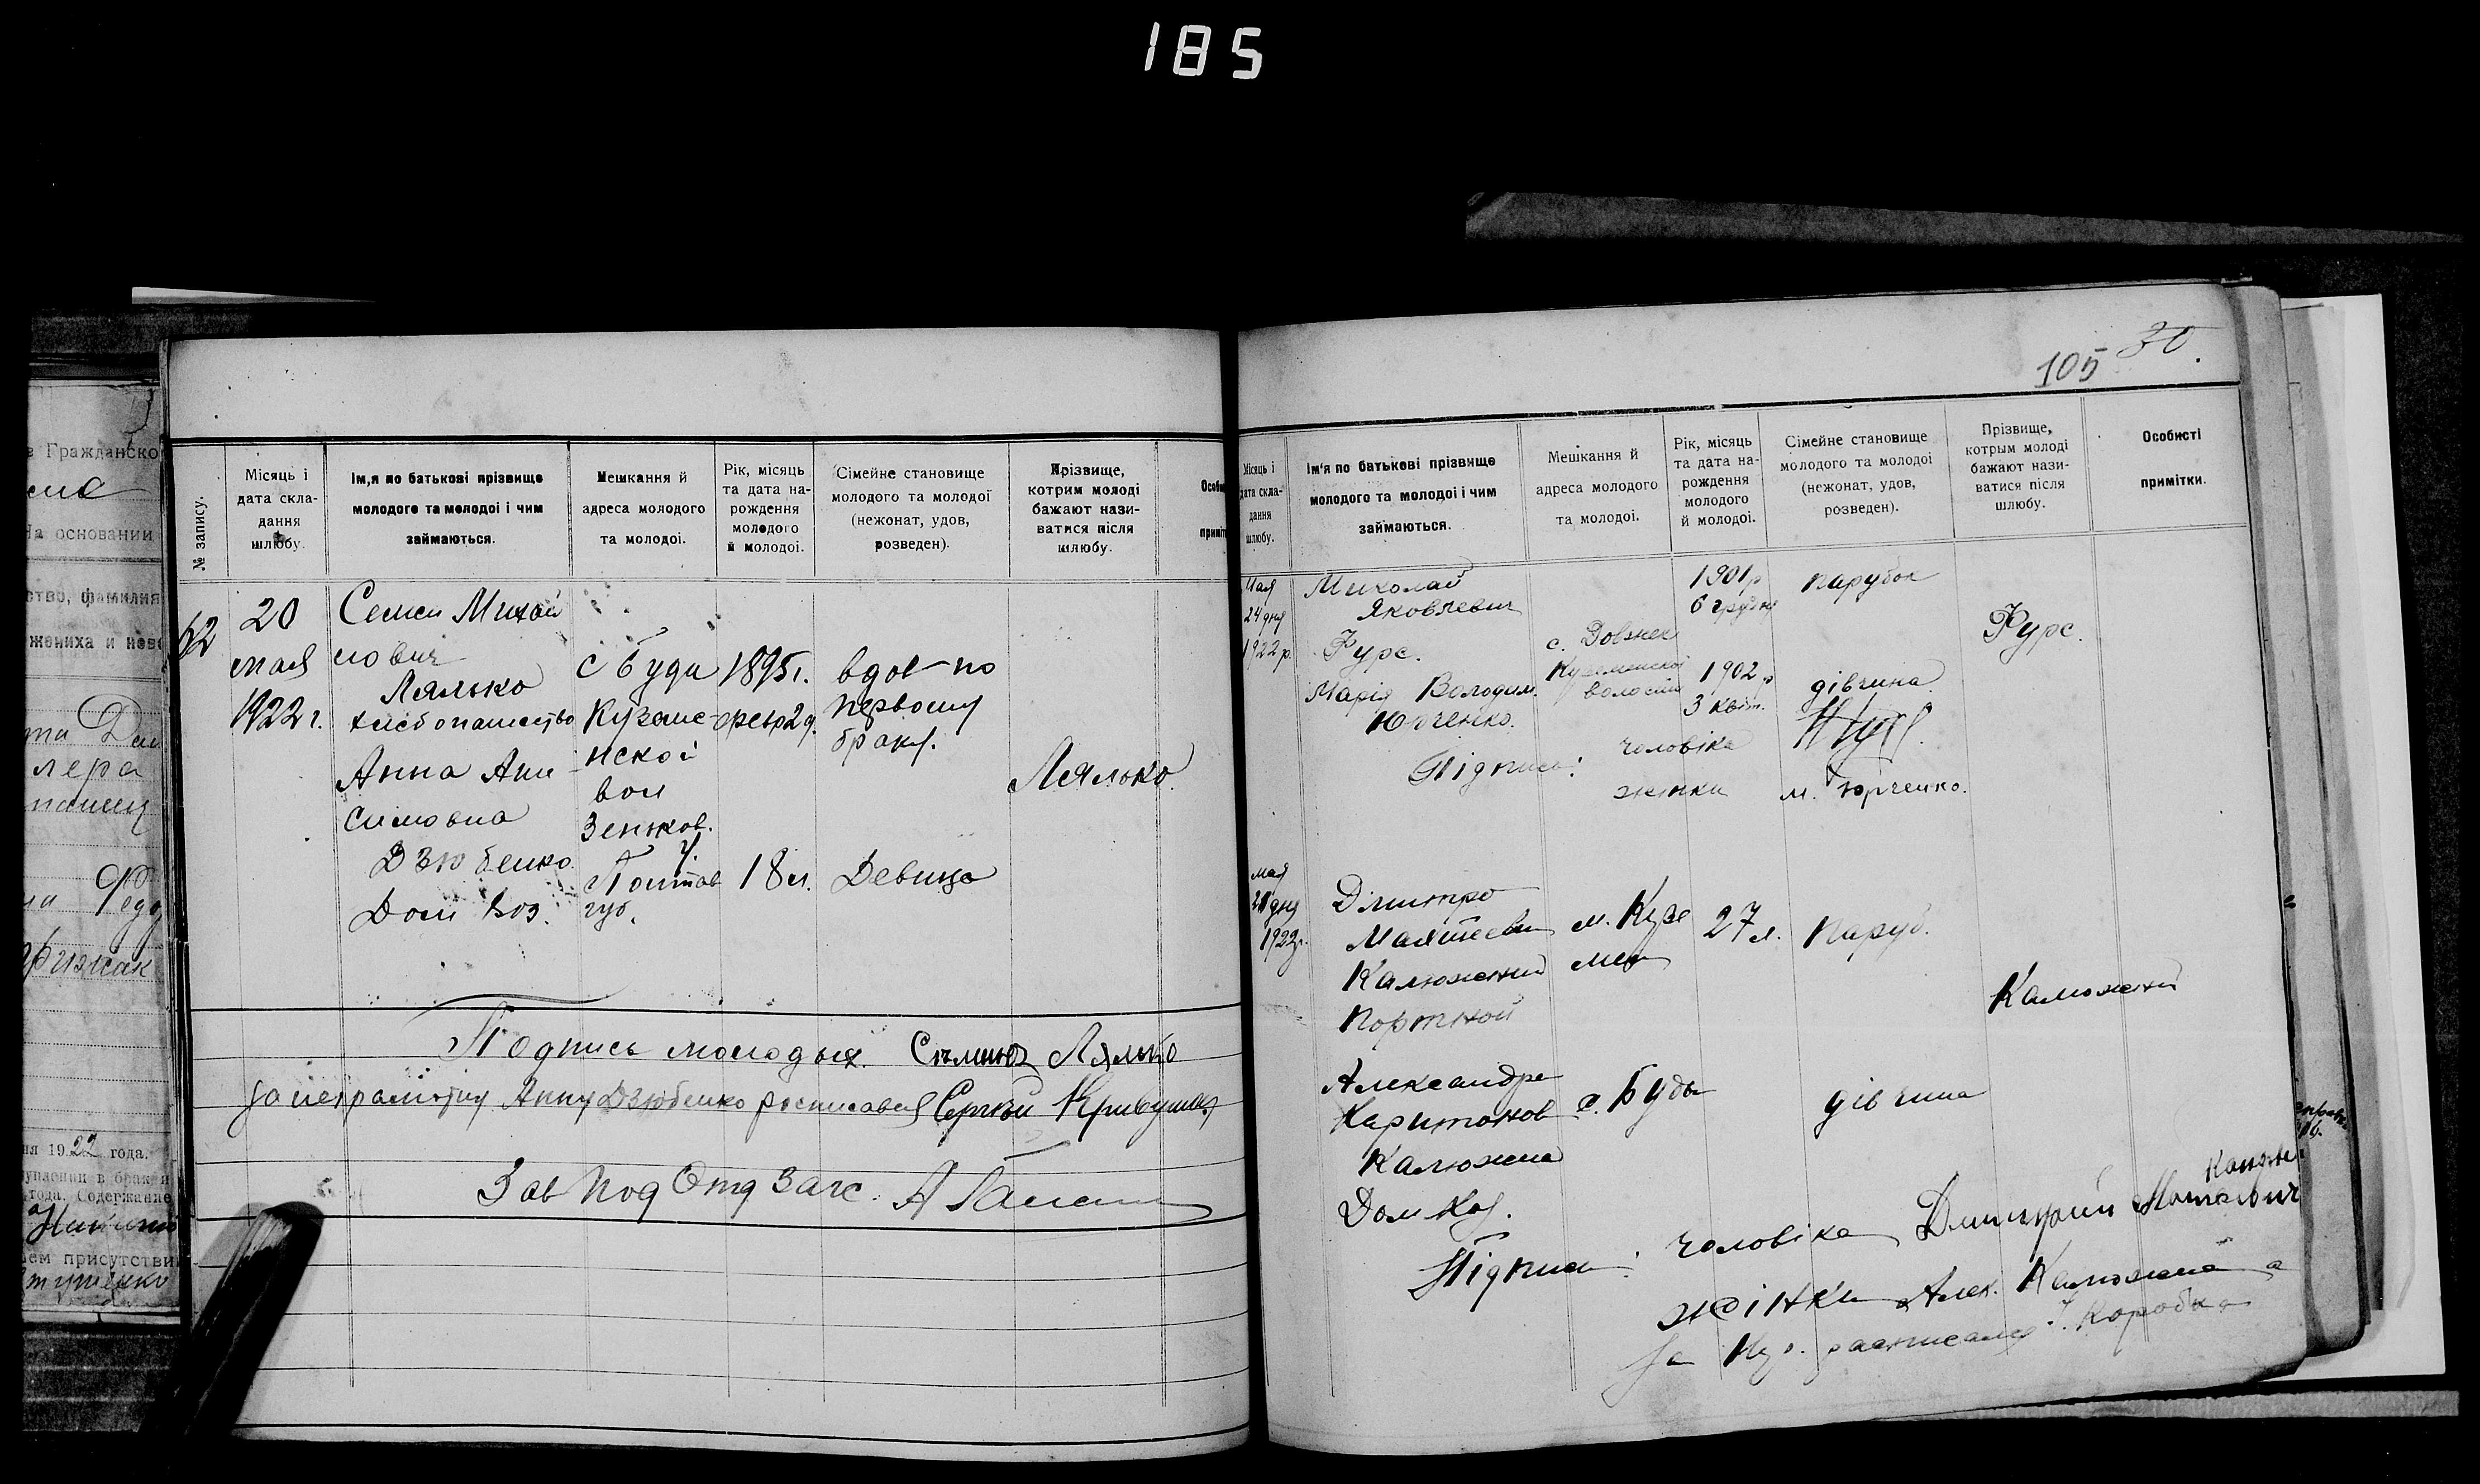 185
в Гражданско
На основании
ство, фамилия
жениха и неве
лера
Федо
ня 1922 года.
года. Содержание
ем присутстви
№ запису.
Місяць і
дата скла-
дання
шлюбу.
Ім,я по батькові прізвище
молодого та молодої і чим
займаються.
Мешкання й
адреса молодого
та молодоі.
Рік, місяць
та дата на-
рождення
молодого
й молодоі.
Сімейне становище
молодого та молодоі
(нежонат, удов,
розведен).
Прізвище,
котрим молоді
бажают нази-
ватися після
шлюбу.
62
20
мая
1922 г.
Семен Михай
лович
Лялько
хлебопашество
Анна Ани-
симовна
Дзюбенко
Дом хоз.
с Буди
Куземе-
нской
вол
Зенков.
у.
Полтав
губ.
1895 г.
18 л.
вдов-по
первому
браку.
Девица
Лялько
Подпись молодых. Лялько
За неграмотну Анну Дзюбенко росписався Сергій
Зав Под Отд Загс.
105 30
Місяць і
дата скла-
дання
шлюбу.
Ім'я по батькові прізвище
молодого та молодоі і чим
займаються.
Мешкання й
адреса молодого
та молодоі.
Рік, місяць
та дата на-
рождення
молодого
й молодоі.
Сімейне становище
молодого та молодоі
(нежонат, удов,
розведен).
Прізвище,
котрим молоді
бажают нази-
ватися після
шлюбу.
Особисті
примітки.
Мая
24 дня
1922 р.
Миколай
Яковлевич
Фурс.
Марія Володим.
Юрченко.
с.
волости
1901 р
6 грудня
1902 р
3 квіт.
парубок
дівчина
Фурс.
Підписи: чоловіка
жінки м. Юрченко.
мая
дня
1922 р.
Дмитро
Калюжний
портной
м. Кузе
мен
27 л.
Паруб.
Калюжний
Александра
Харитонов
Калюжна
Дом
с. Буды
дівчина
Підписи: чоловіка Дмитрий
жінки Алек. Калюжна а
За росписался Коробка